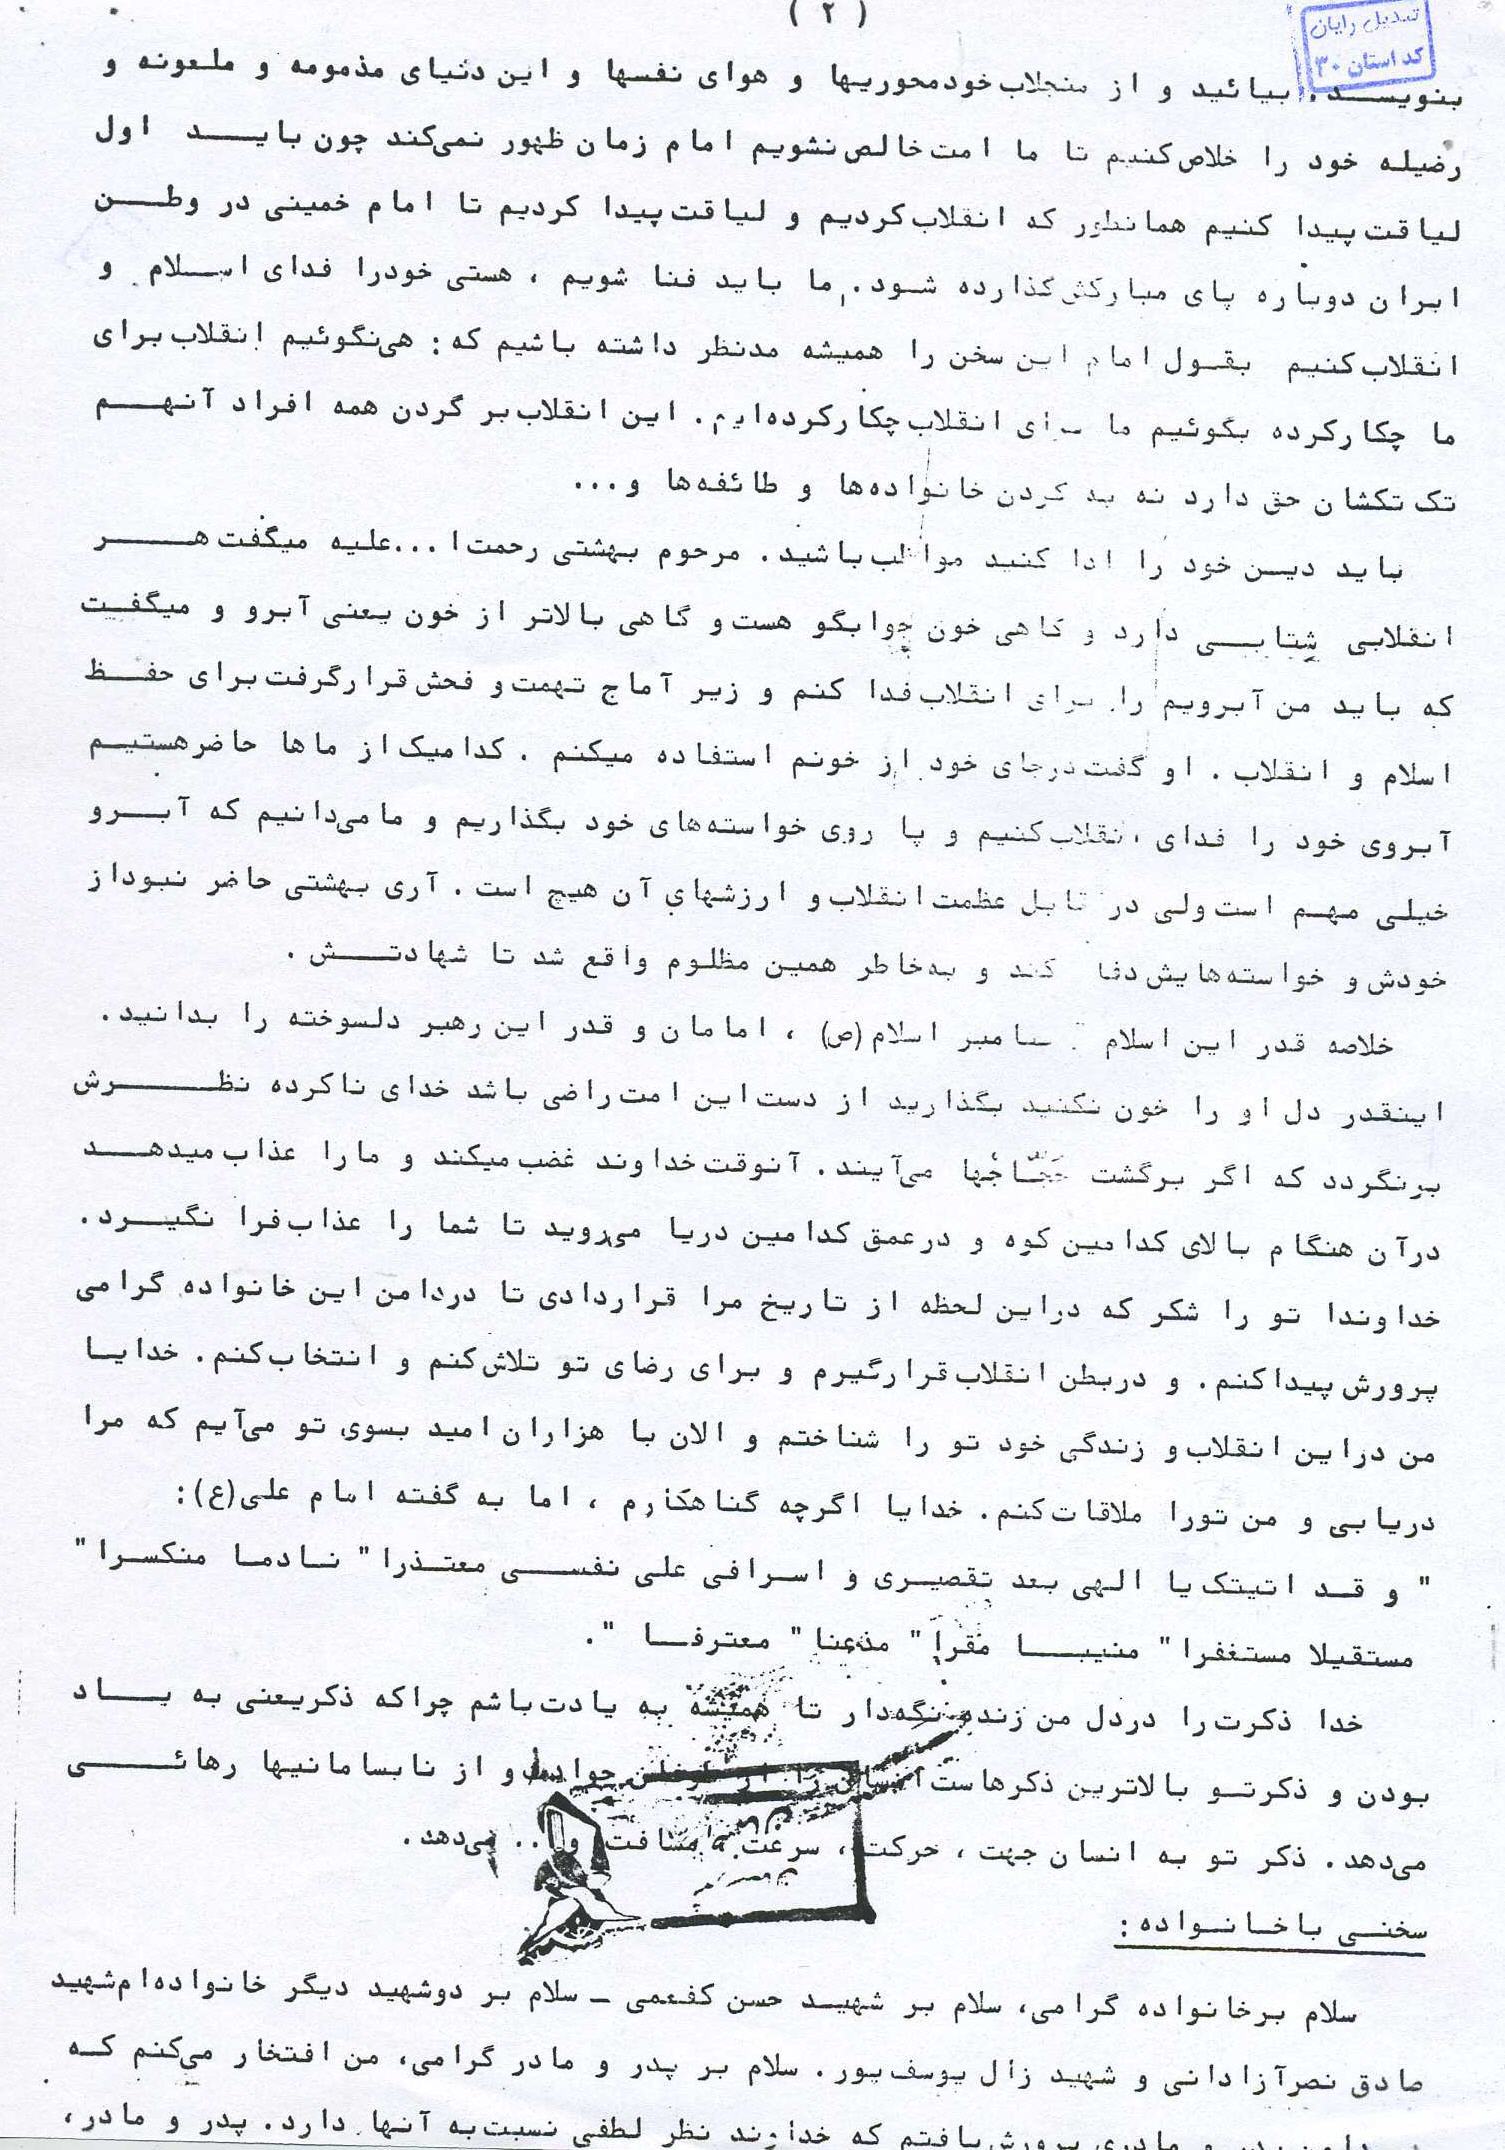 ( ۲ )
تبدیل رایان
کد استان ۳۰
بنویسد. بیائید و از منجلاب خودمحوریها و هوای نفسها و این دنیای مذمومه و ملعونه و
رضیله خود را خلاص کنیم تا ما امت خالص نشویم امام زمان ظهور نمی‌کند چون باید اول
لیاقت پیدا کنیم همانطور که انقلاب کردیم و لیاقت پیدا کردیم تا امام خمینی در وطن
ایران دوباره پای مبارکش گذارده شود. ما باید فنا شویم ، هستی خودرا فدای اسلام و
انقلاب کنیم بقول امام این سخن را همیشه مدنظر داشته باشیم که: هی‌نگوئیم انقلاب برای
ما چکارکرده بگوئیم ما برای انقلاب چکارکرده‌ایم. این انقلاب بر گردن همه افراد آنهم
تک تکشان حق دارد نه به گردن خانواده‌ها و طائفه‌ها و...
باید دین خود را ادا کنید مواظب باشید. مرحوم بهشتی رحمت ا...علیه میگفت هر
انقلابی شتابی دارد و گاهی خون جوابگو هست و گاهی بالاتر از خون یعنی آبرو و میگفت
که باید من آبرویم را برای انقلاب فدا کنم و زیر آماج تهمت و فحش قرارگرفت برای حفظ
اسلام و انقلاب. او گفت درجای خود از خونم استفاده میکنم. کدامیک از ماها حاضر هستیم
آبروی خود را فدای انقلاب کنیم و پا روی خواسته‌های خود بگذاریم و ما می‌دانیم که آبرو
خیلی مهم است ولی در قابل عظمت انقلاب و ارزشهای آن هیچ است. آری بهشتی حاضر نبود از
خودش و خواسته‌هایش دفاع کند و به‌خاطر همین مظلوم واقع شد تا شهادتش.
خلاصه قدر این اسلام پیامبر اسلام (ص) ، امامان و قدر این رهبر دلسوخته را بدانید.
اینقدر دل او را خون نکنید بگذارید از دست این امت راضی باشد خدای ناکرده نظرش
برنگردد که اگر برگشت حَجّاجْها می‌آیند. آنوقت خداوند غضب میکند و مارا عذاب میدهد
درآن هنگام بالای کدامین کوه و درعمق کدامین دریا می‌روید تا شما را عذاب فرا نگیرد.
خداوندا تو را شکر که دراین لحظه از تاریخ مرا قراردادی تا دردامن این خانواده گرامی
پرورش پیداکنم. و دربطن انقلاب قرارگیرم و برای رضای تو تلاش کنم و انتخاب کنم. خدایا
من دراین انقلاب و زندگی خود تو را شناختم و الان با هزاران امید بسوی تو می‌آیم که مرا
دریابی و من تورا ملاقات کنم. خدایا اگرچه گناهکارم ، اما به گفته امام علی(ع):
" و قد اتیتک یا الهی بعد تقصیری و اسرافی علی نفسی معتذرا" نادما منکسرا"
مستقیلا مستغفرا" منیبا مقرا" مذعنا" معترفا ".
خدا ذکرت را دردل من زنده نگه‌دار تا همیشه به یادت باشم چراکه ذکر یعنی به یاد
بودن و ذکرتو بالاترین ذکرهاست انسان را از طوفان حوادث و از نابسامانیها رهائی
می‌دهد. ذکر تو به انسان جهت ، حرکت ، سرعت ، مسافت و... می‌دهد.
سخنی با خانواده:
سلام برخانواده گرامی، سلام بر شهید حسن کفعمی - سلام بر دوشهید دیگر خانواده‌ام شهید
صادق نصرآزادانی و شهید زال یوسف‌پور. سلام بر پدر و مادر گرامی، من افتخار می‌کنم که
پدر و مادری پرورش یافتم که خداوند نظر لطفی نسبت به آنها دارد. پدر و مادر،